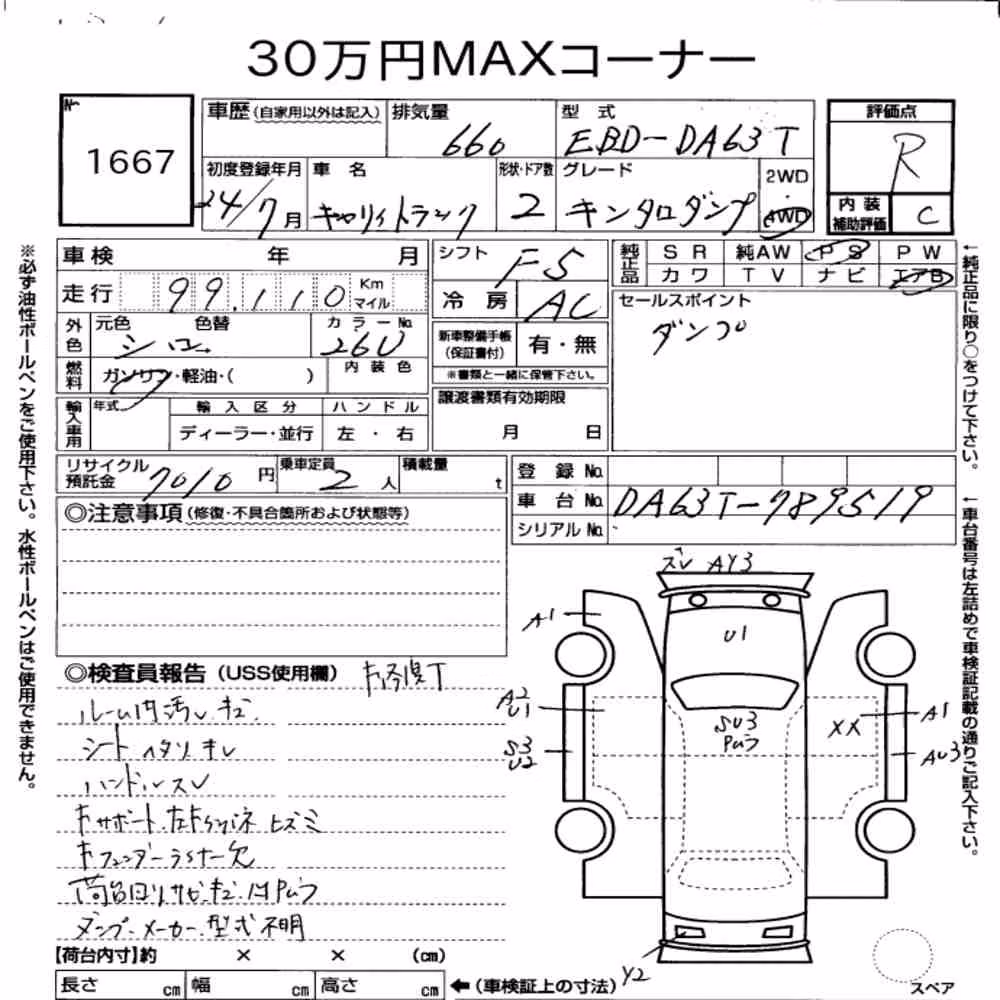 30万円MAXコーナー
№
1667
車歴(自家用以外は記入) 排気量 660 型式 EBD-DA63T
初度登録年月 24/7月 車名 キャリィトラック 形状・ドア数 2 グレード キンタロダンプ 2WD・4WD
評価点 R
内装補助評価 C
車検 年 月
走行 99.110 Km マイル
シフト F5
冷房 AC
純正品 SR 純AW PS PW
カワ TV ナビ エアB
セールスポイント
ダンプ
外色 元色 シロ 色替 カラーNo. 26U
燃料 ガソリン・軽油・( ) 内装色
新車整備手帳(保証書付) 有・無
※書類と一緒に保管下さい。
輸入車用 年式 輸入区分 ハンドル
ディーラー・並行 左・右
譲渡書類有効期限
月 日
リサイクル預託金 7010円 乗車定員 2人 積載量 t
登録No.
車台No. DA63T-789519
シリアルNo.
◎注意事項(修復・不具合箇所および状態等)
◎検査員報告(USS使用欄)
ルーム内汚レ.キズ.
シート ヘタリ.キレ
ハンドルスレ
荷台回りサビ.キズ.凹
ダンプ.メーカー.型式不明
【荷台内寸】約 × × (cm)
長さ cm 幅 cm 高さ cm
←(車検証上の寸法)
ズレ AY3
A1
U1
A2
U1
S3
U2
SU3
XX
A1
AU3
Y2
スペア
※必ず油性ボールペンをご使用下さい。水性ボールペンはご使用できません。
←純正品に限り○をつけて下さい。
←車台番号は左詰めで車検証記載の通りご記入下さい。